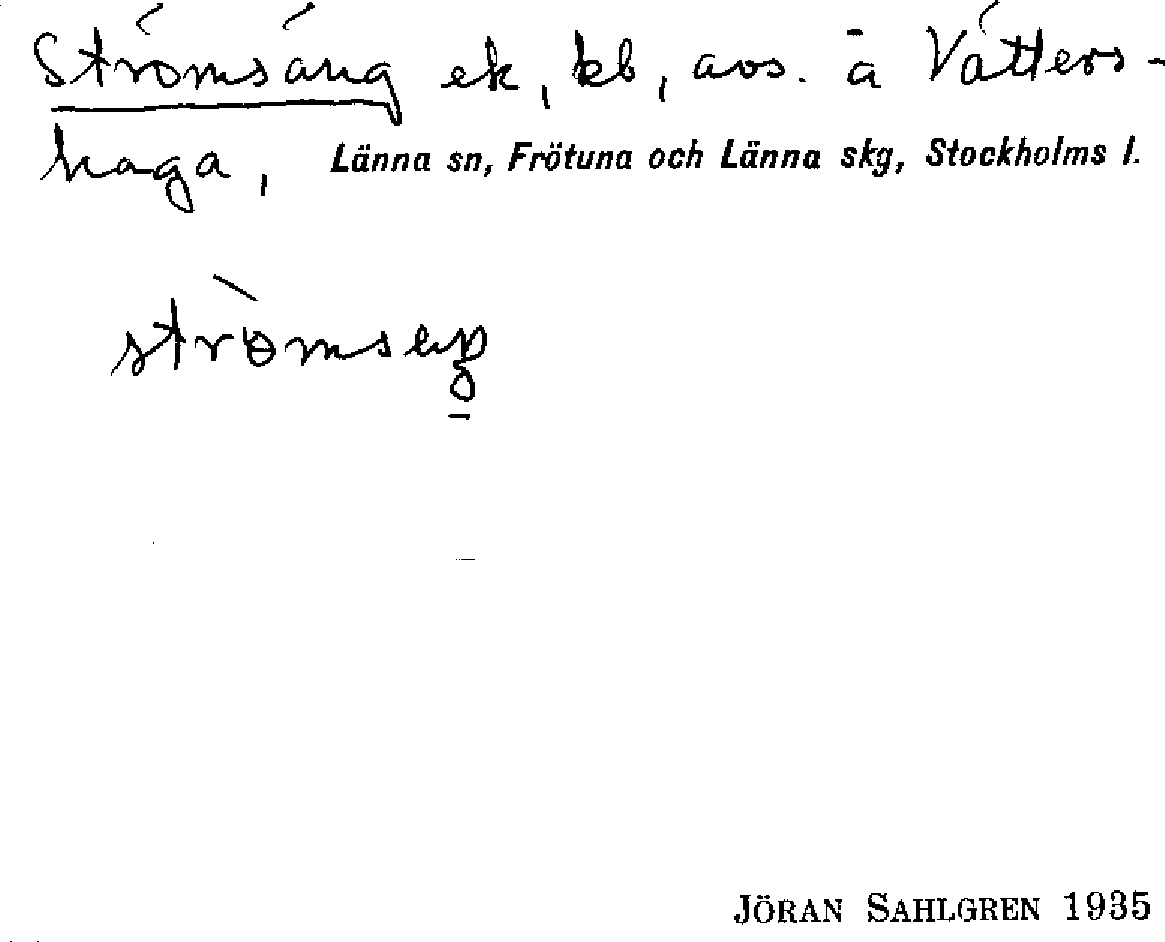 Strömsäng ek, kb, avs. å Vätters-
haga, Länna sn, Frötuna och Länna skg, Stockholms l.
JÖRAN SAHLGREN 1935